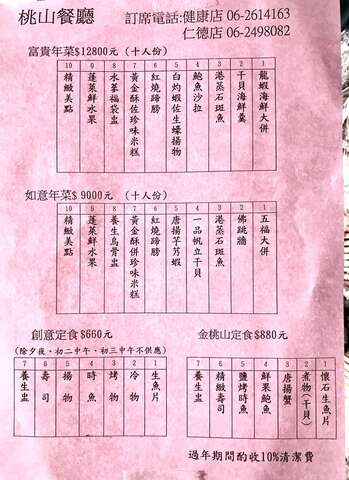 桃山餐廳
訂席電話:健康店 06-2614163
仁德店 06-2498082
富貴年菜$12800元（十人份）
10 9 8 7 6 5 4 3 2 1
龍蝦海鮮大併
干貝海鮮羹
港蒸石斑魚
鮑魚沙拉
白灼蝦佐生蠔揚物
紅燒蹄膀
黃金酥佐珍味米糕
水蔘福袋盅
蓬萊鮮水果
精緻美點
如意年菜$ 9000元（十人份）
10 9 8 7 6 5 4 3 2 1
五福大併
佛跳牆
港蒸石斑魚
一品帆立干貝
唐揚芋艿蝦
紅燒蹄膀
黃金酥併珍味米糕
養生烏骨盅
蓬萊鮮水果
精緻美點
創意定食$660元
(除夕夜，初二中午、初三中午不供應)
7 6 5 4 3 2 1
生魚片
冷物
烤物
時魚
揚物
壽司
養生盅
金桃山定食$880元
7 6 5 4 3 2 1
懷石生魚片
煮物(干貝)
唐揚蟹
鮮果鮑魚
鹽烤時魚
精緻壽司
養生盅
過年期間酌收10%清潔費